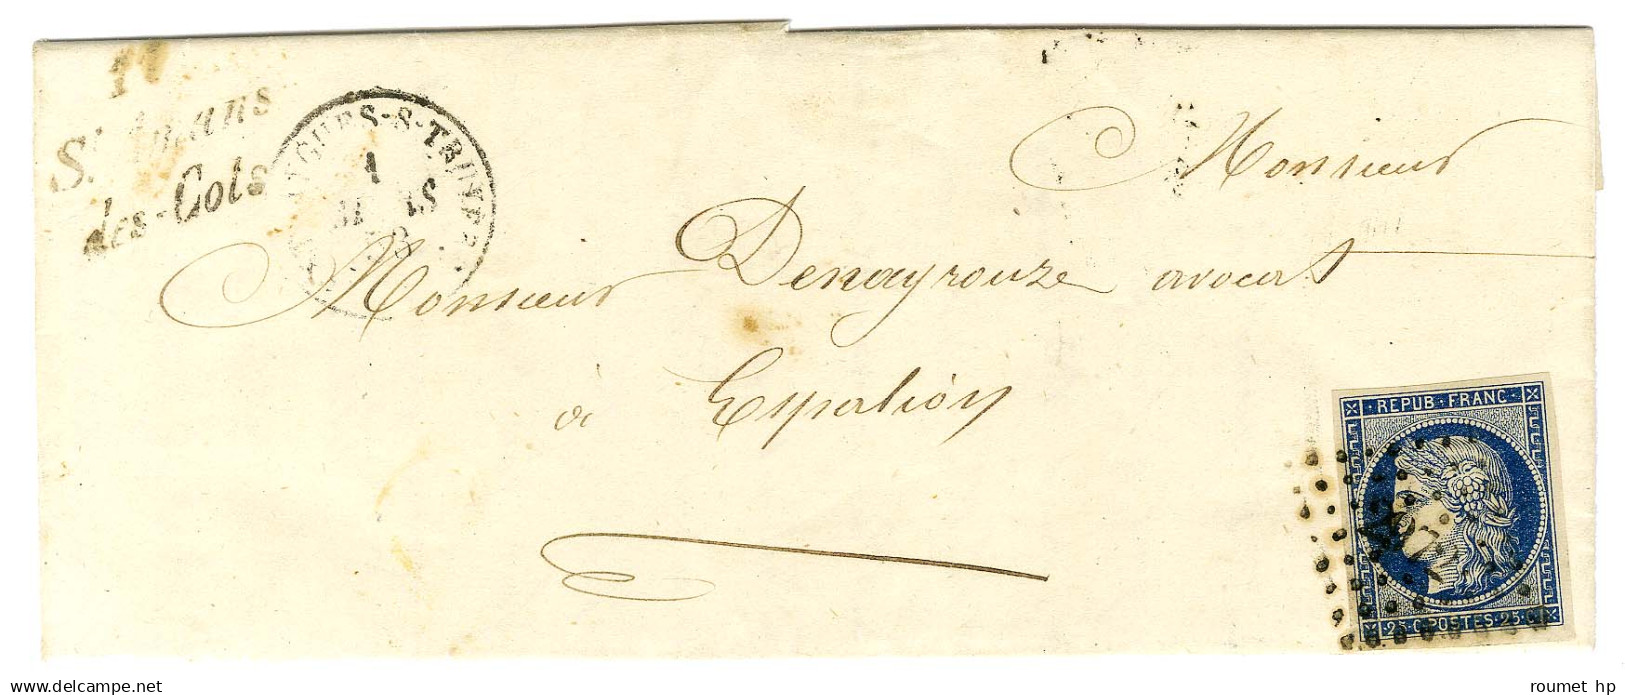 11
St Amans
des-Cots
GUES-S-TRUYÈRE
1
Monsieur
Monsieur Denayrouze avocat
à Espalion
REPUB·FRANC·
25·C·POSTES·25·C
roumet hp